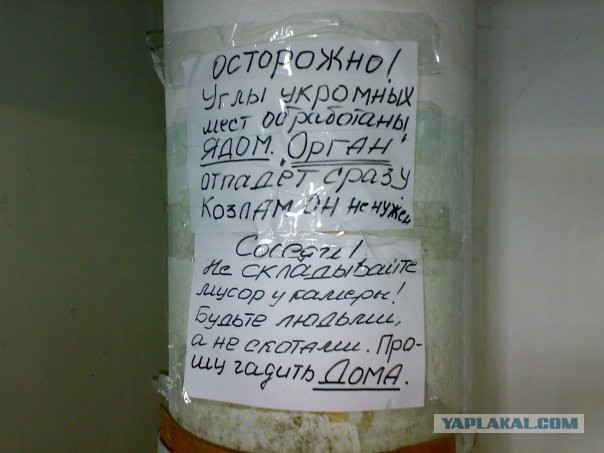 ОСТОРОЖНО!
УГЛЫ УКРОМНЫХ
мест обработаны
ЯДОМ. "ОРГАН"
отпадёт сразу
КОЗЛАМ ОН не нужен
Соседи!
Не складывайте
мусор у камеры!
Будьте людьми,
а не скотами. Про-
шу гадить ДОМА.
YAPLAKAL.COM